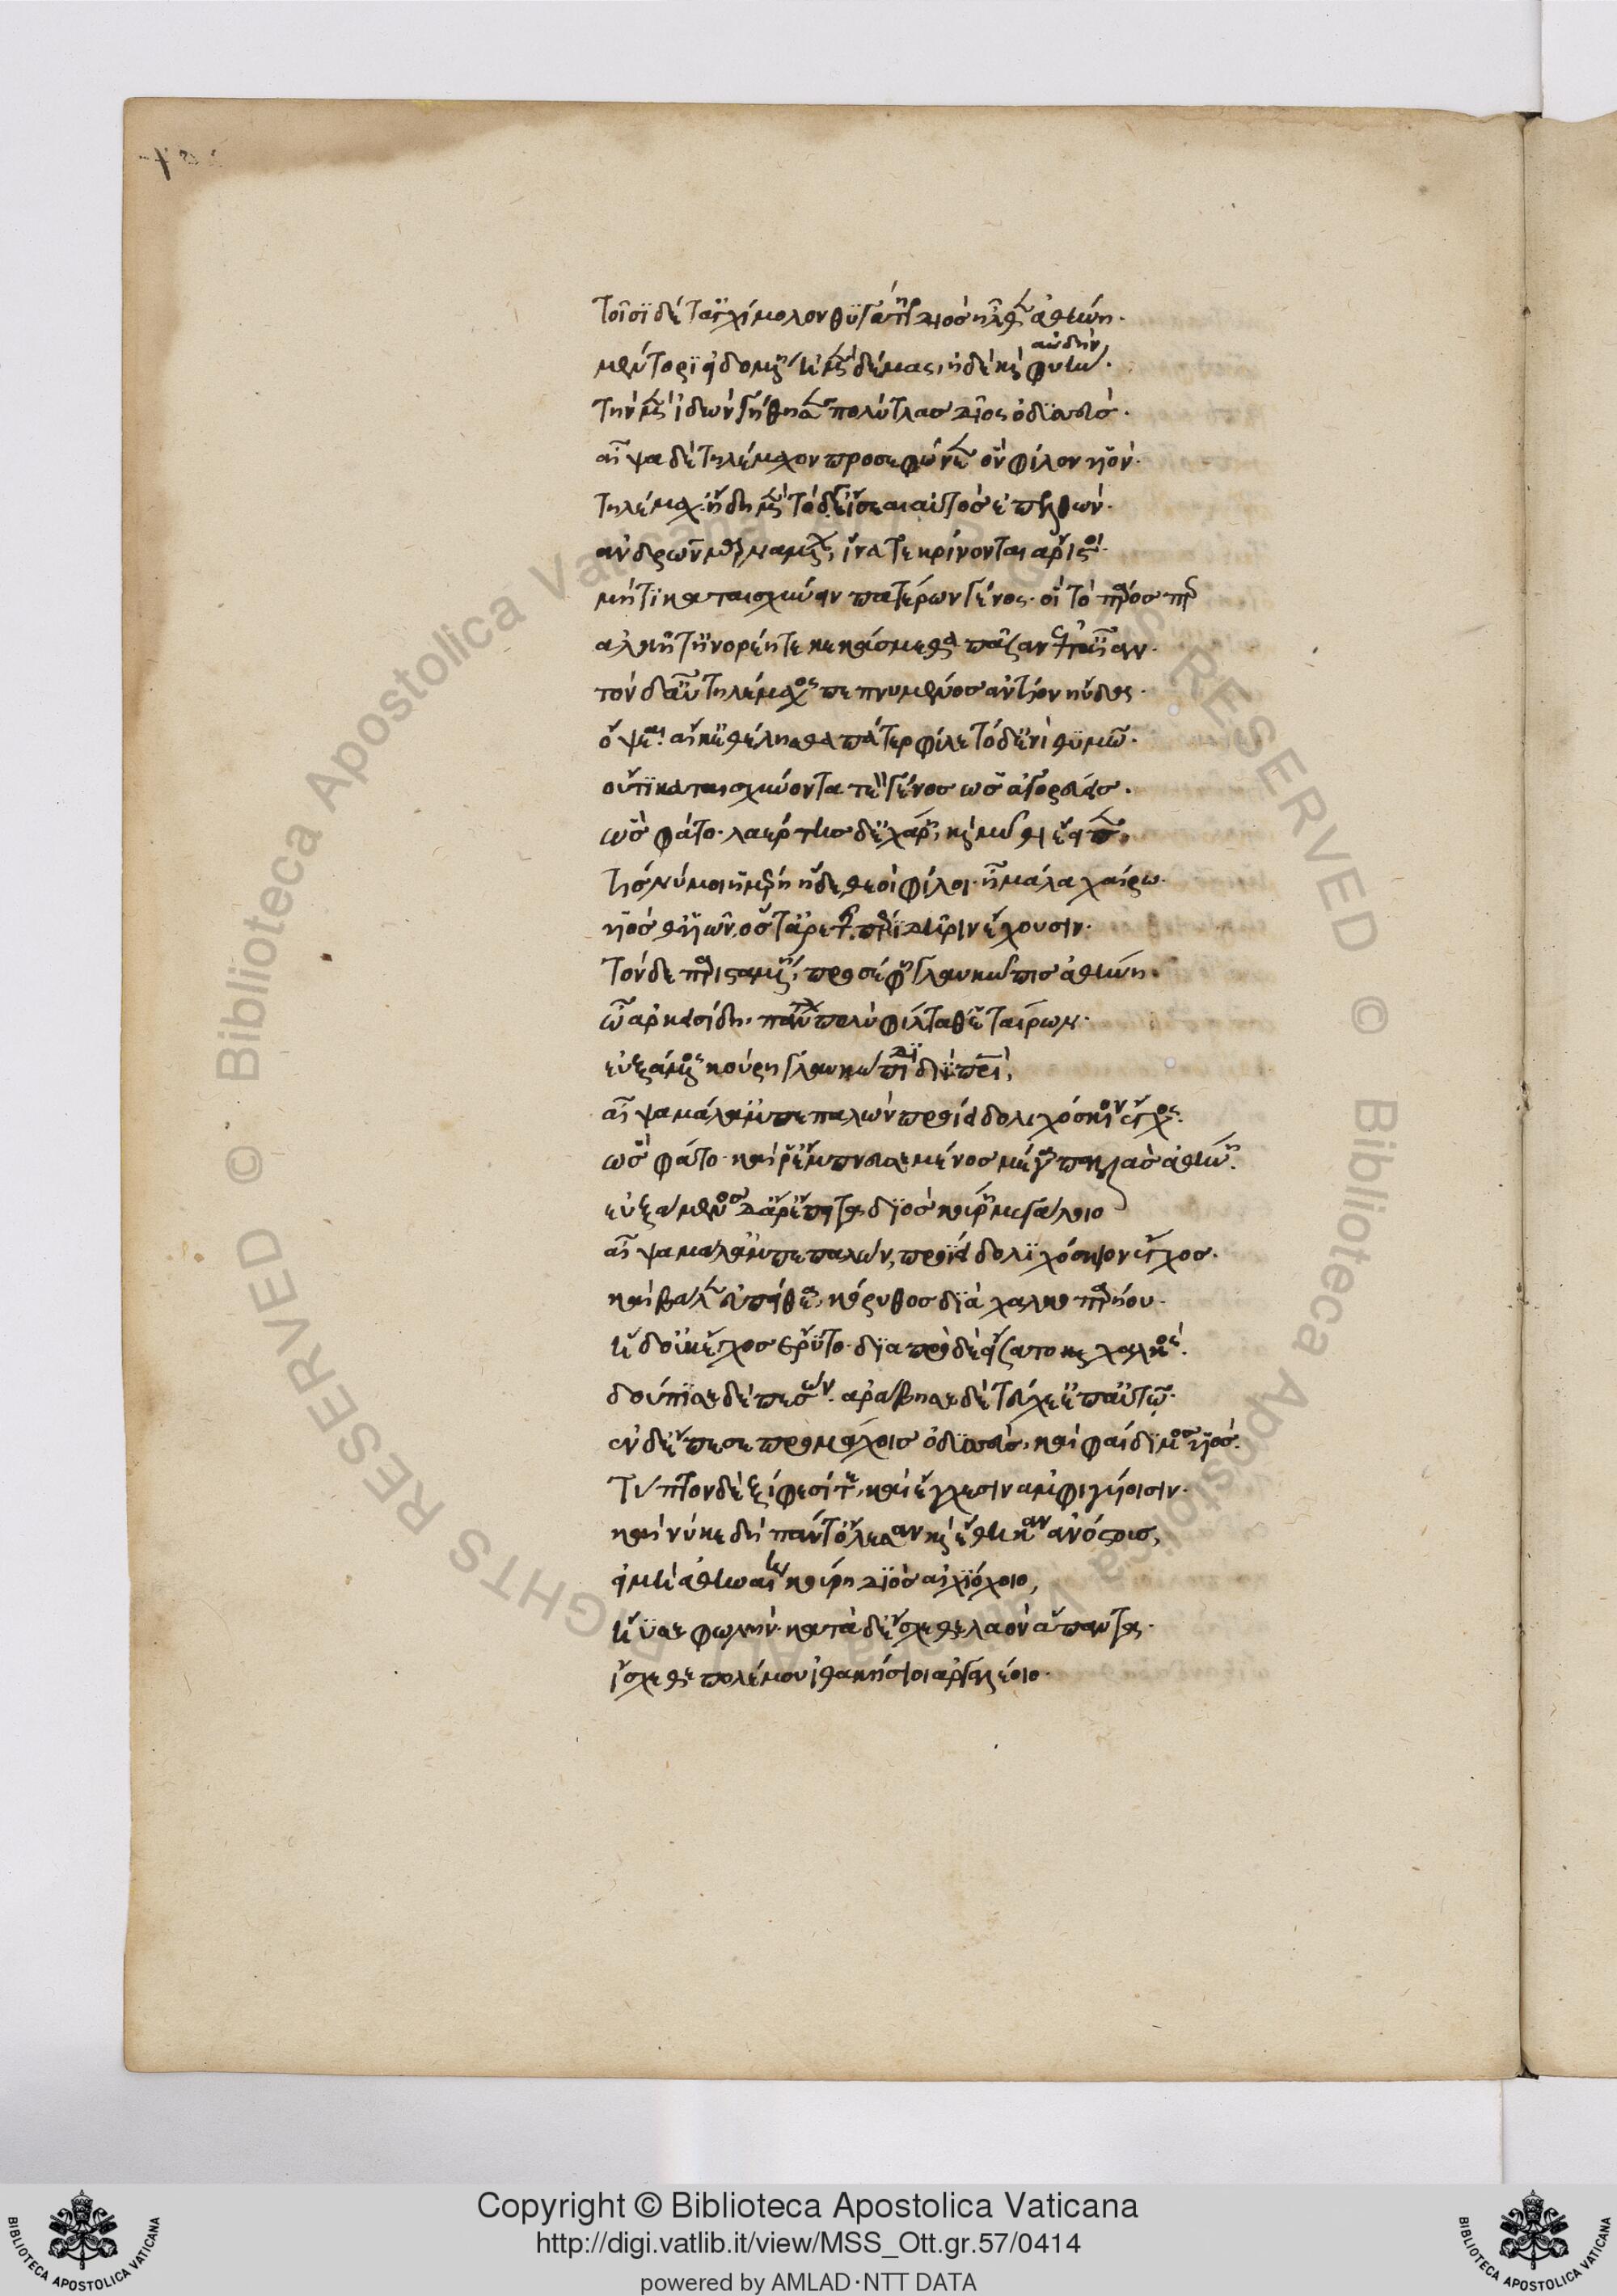 τοῖσι δέ τ' ἀγχίμολον θυγάτηρ διὸς ἦλθεν ἀθήνη·
αὐδήν
μέντορι εἰδομένη ἠμὲν δέμας, ἠδὲ καὶ φωνήν·
τὴν μὲν ἰδὼν γήθησε πολύτλας δῖος ὀδυσσεύς·
αἶψα δὲ τηλέμαχον προσεφώνεεν ὃν φίλον υἱόν·
τηλέμαχ' ἤδη μὲν τόδε εἴσεαι αὐτὸς ἐπελθών·
ἀνδρῶν μαρναμένων, ἵνα τε κρίνονται ἄριστοι·
μήτι καταισχύνειν πατέρων γένος· οἳ τὸ πάρος περ
ἀλκῇ τ' ἠνορέῃ τε κεκάσμεθα πᾶσαν ἐπ' αἶαν·
τὸν δ' αὖ τηλέμαχος πεπνυμένος ἀντίον ηὔδα·
ὄψεαι αἴ κ' ἐθέλῃσθα πάτερ φίλε τόδ' ἐνὶ θυμῷ·
οὔτι καταισχύοντα τεὸν γένος ὡς ἀγορεύεις·
ὣς φάτο· λαέρτης δ' ἐχάρη, καὶ μῦθον ἔειπε·
τίς νύ μοι ἡμέρη ἥδε θεοὶ φίλοι· ἦ μάλα χαίρω·
υἱός θ' υἱωνός τ' ἀρετῆς πέρι δῆριν ἔχουσιν·
τὸν δὲ παρισταμένη, προσέφη γλαυκῶπις ἀθήνη·
ὦ ἀρκεισίδη, πάντων πολὺ φίλταθ' ἑταίρων·
εὐξάμενος κούρη γλαυκώπιδι καὶ διὶ πατρί,
αἶψα μάλ' ἀμπεπαλὼν προΐει δολιχόσκιον ἔγχος·
ὣς φάτο· καί ῥ' ἔμπνευσε μένος μέγα παλλὰς ἀθήνη·
εὐξάμενος δ' ἄρ' ἔπειτα διὸς κούρῃ μεγάλοιο
αἶψα μάλ' ἀμπεπαλὼν, προΐει δολιχόσκιον ἔγχος·
καὶ βάλεν εὐπείθεα, κόρυθος διὰ χαλκοπαρήου·
ἡ δ' οὐκ ἔγχος ἔρυτο· διὰ πρὸ δὲ εἴσατο καὶ χαλκός·
δούπησε δὲ πεσών· ἀράβησε δὲ τεύχε' ἐπ' αὐτῷ·
ἐν δ' ἔπεσε προμάχοις ὀδυσεύς, καὶ φαίδιμος υἱός·
τύπτον δὲ ξίφεσίν τε, καὶ ἔγχεσιν ἀμφιγύοισιν·
καί νύ κε δὴ πάντας ὄλεσαν καὶ ἔθηκαν ἀνόστους,
εἰ μὴ ἀθηναίη κούρη διὸς αἰγιόχοιο,
ἤϋσε φωνήν· κατὰ δ' ἔσχεθε λαὸν ἅπαντα·
ἴσχεσθε πολέμου ἰθακήσιοι ἀργαλέοιο·
Copyright © Biblioteca Apostolica Vaticana
http://digi.vatlib.it/view/MSS_Ott.gr.57/0414
powered by AMLAD·NTT DATA